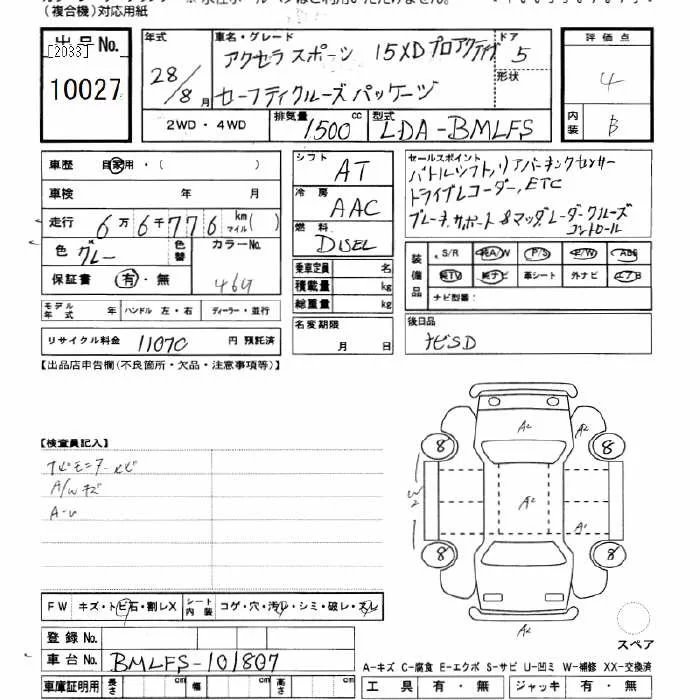 (複合機)対応用紙
出品No.
[2033]
10027
年式
28/8月
車名・グレード
アクセラスポーツ 15XDプロアクティブ
セーフティクルーズパッケージ
ドア
5
形状
評価点
4
内装
B
2WD・4WD
排気量
1500cc
型式
LDA-BMLFS
車歴 自家用・( )
車検 年 月
走行 6万6千776 km マイル( )
色 グレー
色替
カラーNo.
46G
保証書 有・無
モデル年式 年
ハンドル 左・右
ディーラー・並行
リサイクル料金 11070 円 預託済
シフト
AT
冷房
AAC
燃料
DISEL
乗車定員 名
積載量 kg
総重量 kg
名変期限
月 日
セールスポイント
パドルシフト,リアパーキングセンサー
ドライブレコーダー,ETC
ブレーキサポート&マツダレーダークルーズ
コントロール
装備品
S/R 純A/W P/S P/W ABS
純TV 純ナビ 革シート 外ナビ エアB
ナビ型番:
後日品
ナビSD
【出品店申告欄(不良箇所・欠品・注意事項等)】
【検査員記入】
A/Wキズ
A-U
FW キズ・トビ石・割レX
シート内装 コゲ・穴・汚レ・シミ・破レ・スレ
登録No.
車台No. BMLFS-101807
車庫証明用 長さ cm 幅 cm 高さ cm
A2
A2
8
8
W2
A2
A1
8
8
A2
スペア
A-キズ C-腐食 E-エクボ S-サビ U-凹ミ W-補修 XX-交換済
工具 有・無 ジャッキ 有・無